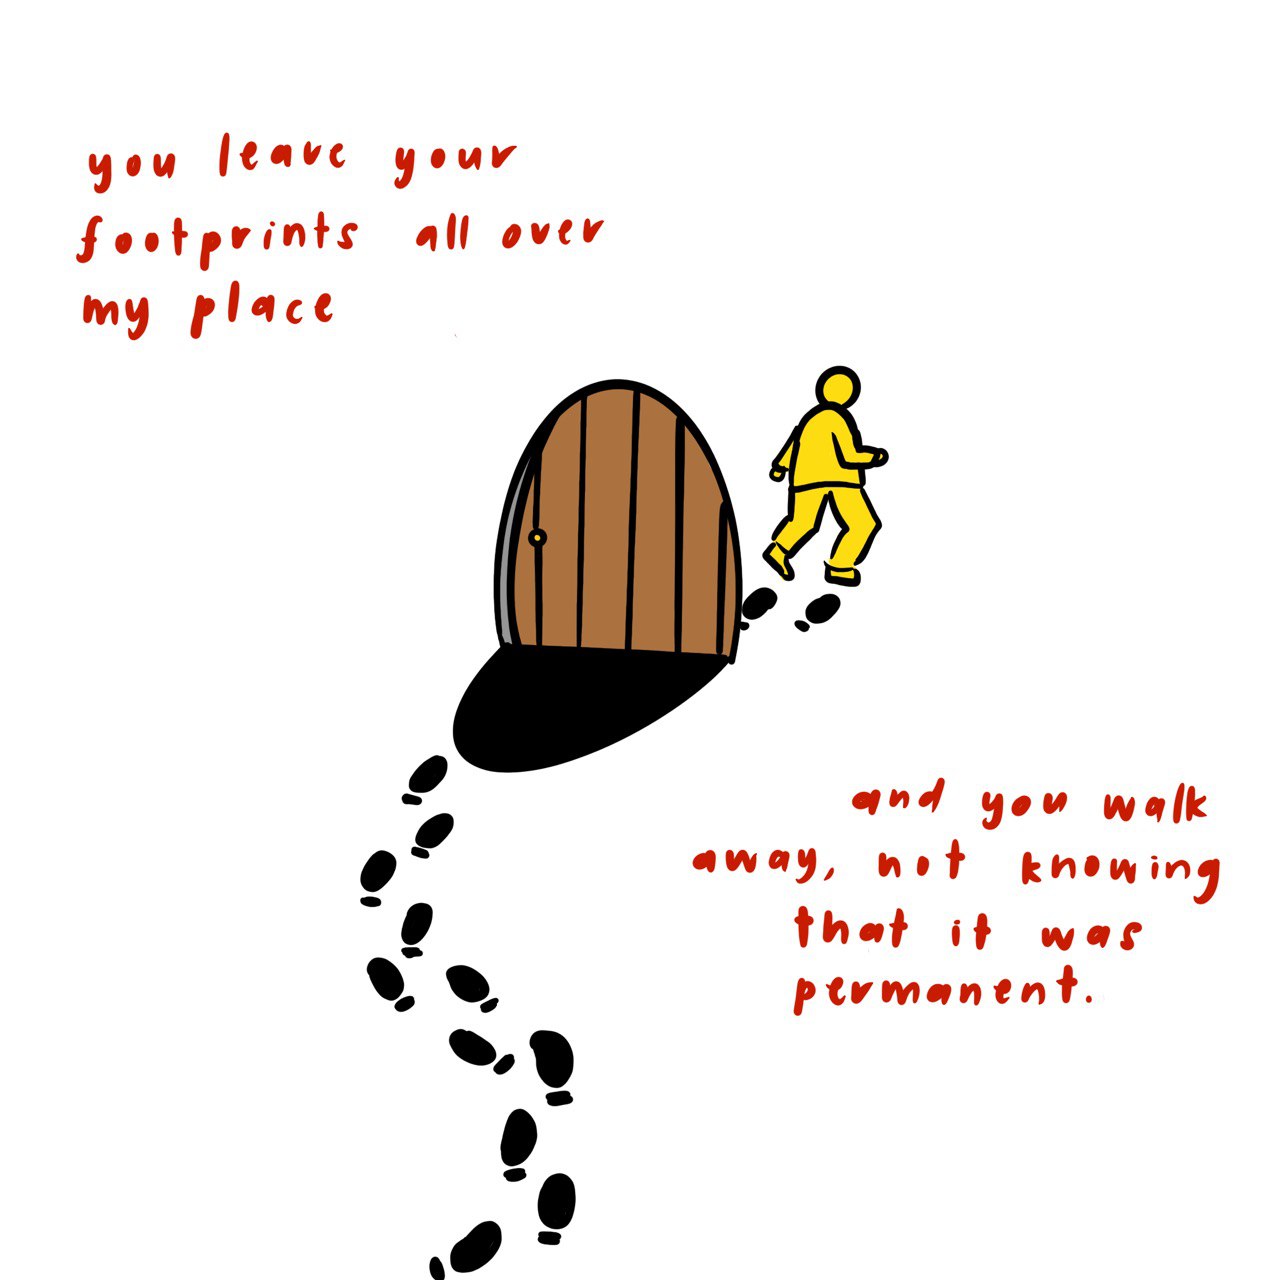 you leave your
footprints all over
my place
and you walk
away, not knowing
that it was
permanent.